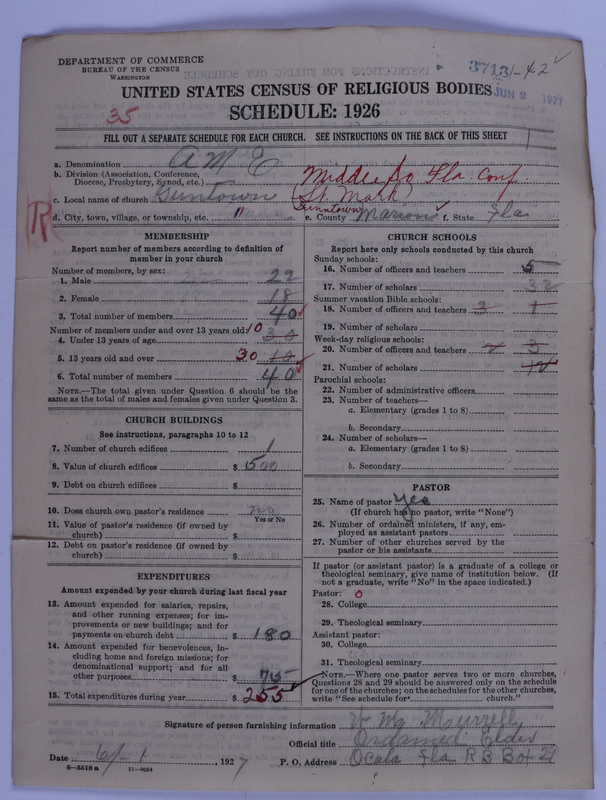 DEPARTMENT OF COMMERCE
BUREAU OF THE CENSUS
WASHINGTON
3713 1-42
JUN 2 1927
UNITED STATES CENSUS OF RELIGIOUS BODIES
SCHEDULE: 1926
35
FILL OUT A SEPARATE SCHEDULE FOR EACH CHURCH. SEE INSTRUCTIONS ON THE BACK OF THIS SHEET
a. Denomination A M E
b. Division (Association, Conference, Diocese, Presbytery, Synod, etc.) Middle So Fla. Conf
c. Local name of church Guntown (St. Mark)
R
d. City, town, village, or township, etc. " e. County Marion f. State Fla
MEMBERSHIP
Report number of members according to definition of
member in your church
Number of members, by sex:
1. Male 22
2. Female 18
3. Total number of members 40
Number of members under and over 13 years old:
4. Under 13 years of age 10 30
5. 13 years old and over 30 10
6. Total number of members 40
NOTE.—The total given under Question 6 should be the
same as the total of males and females given under Question 3.
CHURCH BUILDINGS
See instructions, paragraphs 10 to 12
7. Number of church edifices 1
8. Value of church edifices $ 500
9. Debt on church edifices $
10. Does church own pastor's residence no
Yes or No
11. Value of pastor's residence (if owned by
church) $
12. Debt on pastor's residence (if owned by
church) $
EXPENDITURES
Amount expended by your church during last fiscal year
13. Amount expended for salaries, repairs,
and other running expenses; for im-
provements or new buildings; and for
payments on church debt $ 180
14. Amount expended for benevolences, in-
cluding home and foreign missions; for
denominational support; and for all
other purposes $ 75
15. Total expenditures during year $ 255
CHURCH SCHOOLS
Report here only schools conducted by this church
Sunday schools:
16. Number of officers and teachers 5
17. Number of scholars 32
Summer vacation Bible schools:
18. Number of officers and teachers 3 1
19. Number of scholars
Week-day religious schools:
20. Number of officers and teachers 3
21. Number of scholars
Parochial schools:
22. Number of administrative officers
23. Number of teachers—
a. Elementary (grades 1 to 8)
b. Secondary
24. Number of scholars—
a. Elementary (grades 1 to 8)
b. Secondary
PASTOR
25. Name of pastor yes
(If church has no pastor, write "None")
26. Number of ordained ministers, if any, em-
ployed as assistant pastors
27. Number of other churches served by the
pastor or his assistants
If pastor (or assistant pastor) is a graduate of a college or
theological seminary, give name of institution below. (If
not a graduate, write "No" in the space indicated.)
Pastor: 0
28. College
29. Theological seminary
Assistant pastor:
30. College
31. Theological seminary
NOTE.—Where one pastor serves two or more churches,
Questions 28 and 29 should be answered only on the schedule
for one of the churches; on the schedules for the other churches,
write "See schedule for church."
Signature of person furnishing information
Official title Ordained Elder
Date 6/1, 1927 P. O. Address Ocala Fla R B Box 29
8-5518a 11-9054